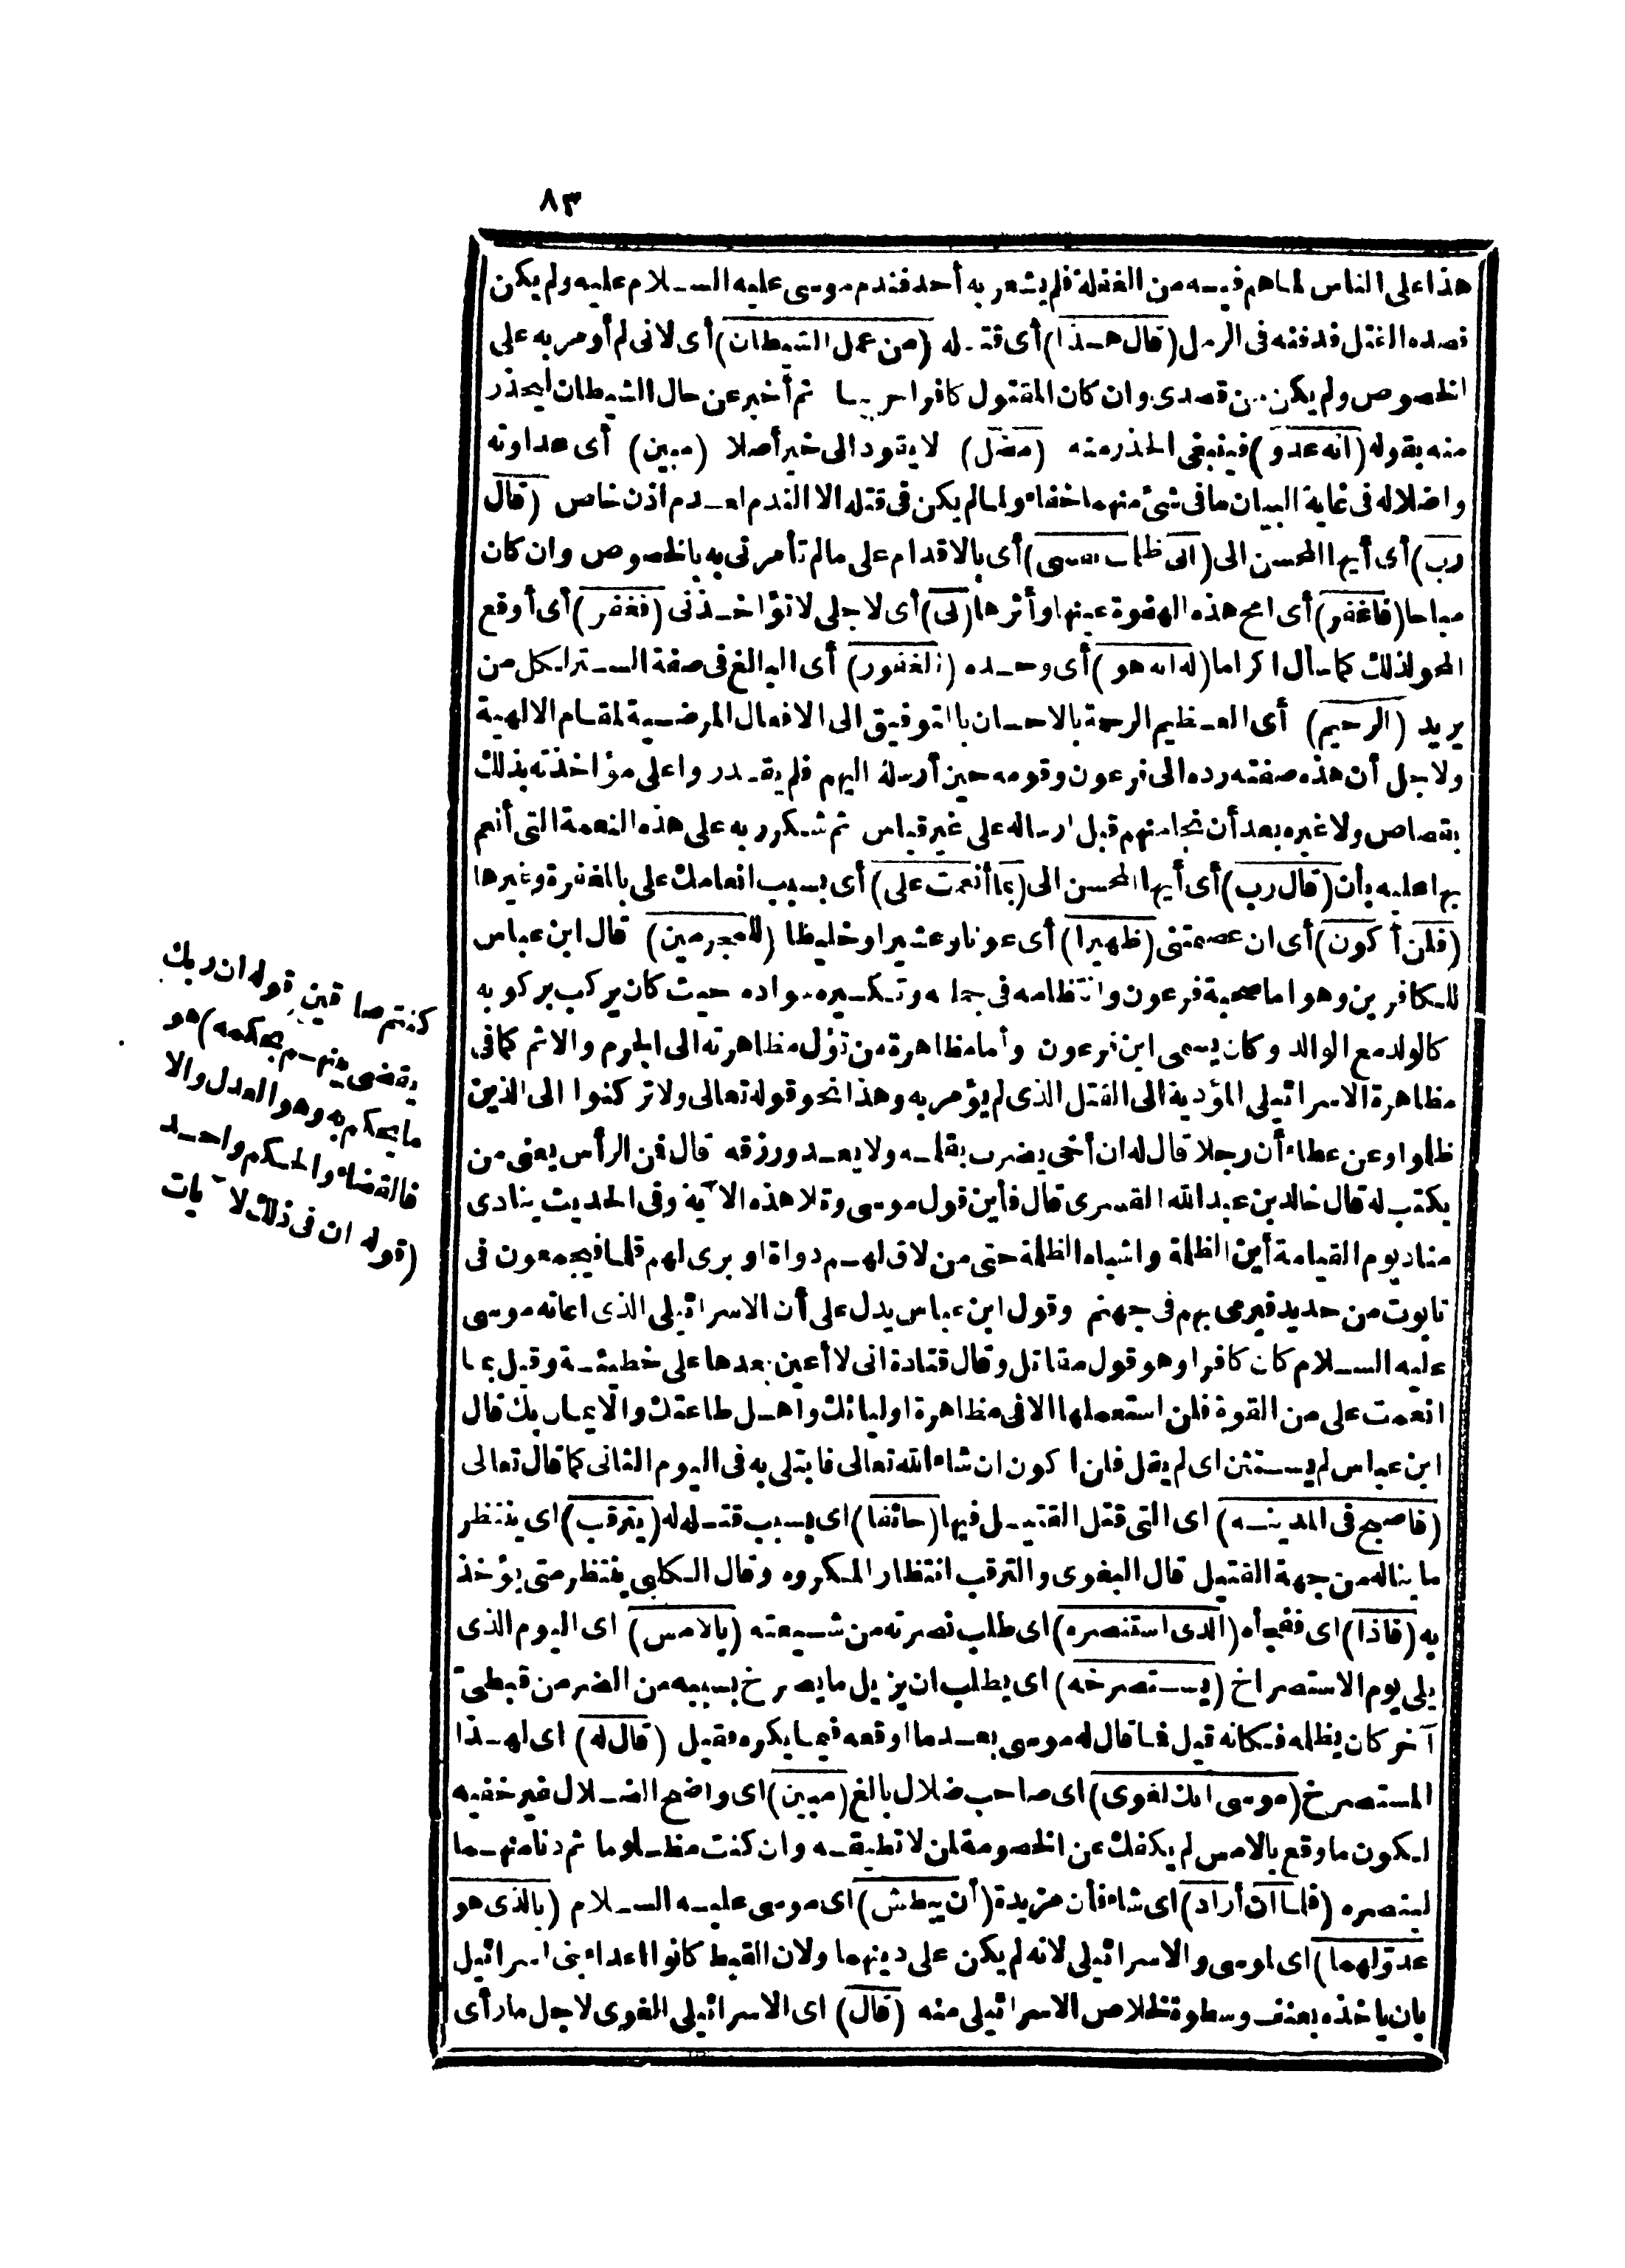 ٨٣
هذا على الناس لما هم فيه من الغفلة فلم يشعر به أحد فندم موسى عليه السلام عليه ولم يكن
قصده القتل فدفنه فى الرمل (قال هذا) أى قتله (من عمل الشيطان) أى لانى لم أومر به على
الخصوص ولم يكن من قصدى وان كان المقتول كافرا حربيا ثم أخبر عن حال الشيطان ليحذر
منه بقوله (انه عدو) فينبغى الحذر منه (مضل) لا يقود الى خير أصلا (مبين) أى عداوته
واضلاله فى غاية البيان ما فى شئ منهما خفاء ولما لم يكن فى قتله الا الندم لعدم اذن خاص (قال
رب) أى أيها المحسن الى (انى ظلمت نفسى) أى بالاقدام على مالم تأمرنى به بالخصوص وان كان
مباحا (فاغفر) أى امح هذه الهفوة عينها وأثرها (لى) أى لاجلى لا تؤاخذنى (فغفر) أى أوقع
المحو لذلك كما سأل اكراما (له انه هو) أى وحده (الغفور) أى البالغ فى صفة الستر لكل من
يريد (الرحيم) أى العظيم الرحمة بالاحسان بالتوفيق الى الافعال المرضية لمقام الالهية
ولاجل أن هذه صفته رده الى فرعون وقومه حين أرسله اليهم فلم يقدروا على مؤاخذته بذلك
بقصاص ولا غيره بعد أن نجا منهم قبل ارساله على غير قياس ثم شكر ربه على هذه النعمة التى أنعم
بها عليه بأن (قال رب) أى أيها المحسن الى (بما أنعمت على) أى بسبب انعامك على بالمغفرة وغيرها
(فلن أكون) أى ان عصمتنى (ظهيرا) أى عونا وعشيرا وخليطا (للمجرمين) قال ابن عباس
للكافرين وهو اما صحبة فرعون وانتظامه فى جملته وتكثيره سواده حيث كان يركب بركوبه
كالولد مع الوالد وكان يسمى ابن فرعون وأما مظاهرة من تؤل مظاهرته الى الجرم والاثم كما فى
مظاهرة الاسرائيلى المؤدية الى القتل الذى لم يؤمر به وهذا نحو قوله تعالى ولا تركنوا الى الذين
ظلموا وعن عطاء أن رجلا قال له ان أخى يضرب بقلمه ولا يعدو رزقه قال فمن الرأس يعنى من
يكتب له قال خالد بن عبد الله القسرى قال فأين قول موسى وتلا هذه الآية وفى الحديث ينادى
مناد يوم القيامة أين الظلمة واشباه الظلمة حتى من لاق لهم دواة او برى لهم قلما فيجمعون فى
تابوت من حديد فيرمى بهم فى جهنم وقول ابن عباس يدل على أن الاسرائيلى الذى اعانه موسى
عليه السلام كان كافرا وهو قول مقاتل وقال قتادة انى لا أعين بعدها على خطيئة وقيل بما
انعمت على من القوة فلن استعملها الا فى مظاهرة اوليائك وأهل طاعتك والايمان بك قال
ابن عباس لم يستثن اى لم يقل فلن اكون ان شاء الله تعالى فابتلى به فى اليوم الثانى كما قال تعالى
(فاصبح فى المدينه) اى التى قتل القتيل فيها (خائفا) اى بسبب قتله له (يترقب) اى ينتظر
ما يناله من جهة القتيل قال البغوى والترقب انتظار المكروه وقال الكلبى ينتظر متى يؤخذ
به (فاذا) اى ففجأه (الذى استنصره) اى طلب نصرته من شيعته (بالامس) اى اليوم الذى
يلى يوم الاستصراخ (يستصرخه) اى يطلب ان يزيل ما يصرخ بسببه من الضر من قبطى
آخر كان يظلمه فكانه قيل فما قال له موسى بعد ما اوقعه فيما يكره فقيل (قال له) اى لهذا
المستصرخ (موسى انك لغوى) اى صاحب ضلال بالغ (مبين) اى واضح الضلال غير خفيه
لكون ما وقع بالامس لم يكفك عن الخصومة لمن لا تطيقه وان كنت مظلوما ثم دنا منهما
لينصره (فلما ان أراد) اى شاء فأن مزيدة (أن يبطش) اى موسى عليه السلام (بالذى هو
عدو لهما) اى لموسى والاسرائيلى لانه لم يكن على دينهما ولان القبط كانوا اعداء بنى اسرائيل
بان يأخذه بعنف وسطوة لخلاص الاسرائيلى منه (قال) اى الاسرائيلى الغوى لاجل ما رأى
كنتم صادقين قوله ان ربك
يقضى بينهم بحكمه) هو
ما يحكم به وهو العدل والا
فالقضاء والحكم واحد
(قوله ان فى ذلك لآيات